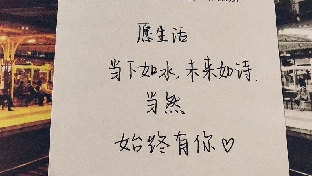 愿生活
当下如水，未来如诗.
当然
始终有你♡